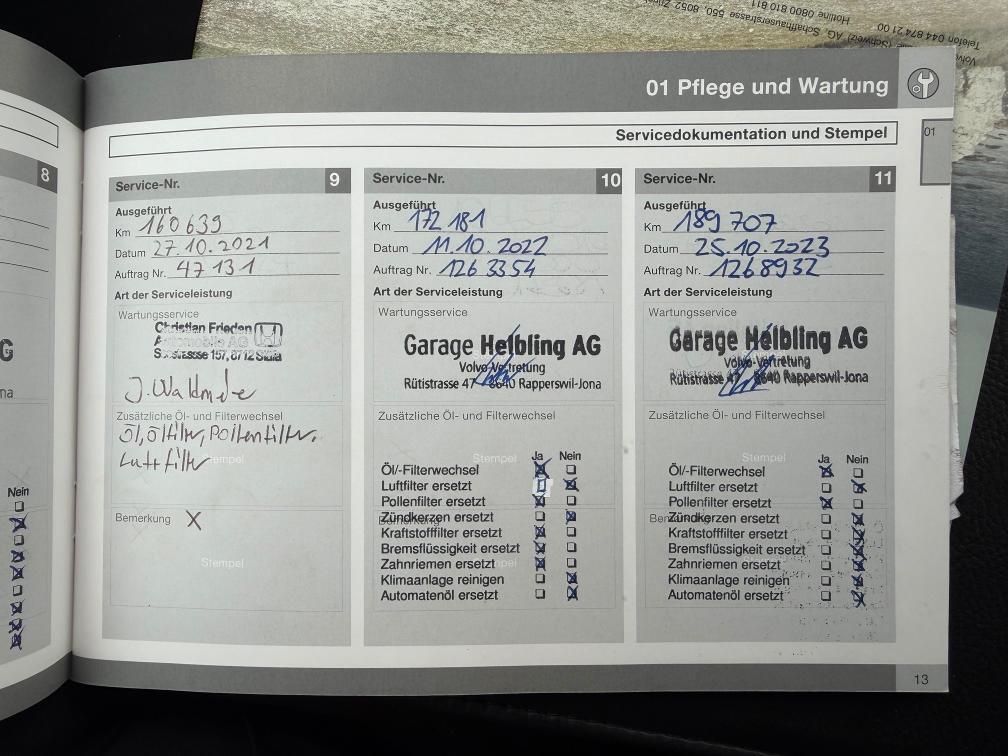 Volvo
(Schweiz) AG, Schaffhauserstrasse 550, 8052
Telefon 044 874 21 00
Hotline 0800 810 811
01 Pflege und Wartung
Servicedokumentation und Stempel
01
8
G
na
Nein
Service-Nr. 9
Ausgeführt
Km 160 639
Datum 27.10.2021
Auftrag Nr. 47 131
Art der Serviceleistung
Wartungsservice
Christian Frieden
Automobile AG
157, 8712 Stäfa
Zusätzliche Öl- und Filterwechsel
Öl, Ölfilter, Pollenfilter,
Luftfilter
Stempel
Bemerkung X
Stempel
Service-Nr. 10
Ausgeführt
Km 172 181
Datum 11.10.2022
Auftrag Nr. 126 3354
Art der Serviceleistung
Wartungsservice
Garage Helbling AG
Volvo-Vertretung
Rütistrasse 47 8640 Rapperswil-Jona
Zusätzliche Öl- und Filterwechsel
Stempel
Ja Nein
Öl/-Filterwechsel
Luftfilter ersetzt
Pollenfilter ersetzt
Zündkerzen ersetzt
Kraftstofffilter ersetzt
Bremsflüssigkeit ersetzt
Zahnriemen ersetzt
Klimaanlage reinigen
Automatenöl ersetzt
Service-Nr. 11
Ausgeführt
Km 189 707
Datum 25.10.2023
Auftrag Nr. 1268932
Art der Serviceleistung
Wartungsservice
Garage Helbling AG
Volvo-Vertretung
Rütistrasse 47 8640 Rapperswil-Jona
Zusätzliche Öl- und Filterwechsel
Stempel
Ja Nein
Öl/-Filterwechsel
Luftfilter ersetzt
Pollenfilter ersetzt
Zündkerzen ersetzt
Kraftstofffilter ersetzt
Bremsflüssigkeit ersetzt
Zahnriemen ersetzt
Klimaanlage reinigen
Automatenöl ersetzt
13